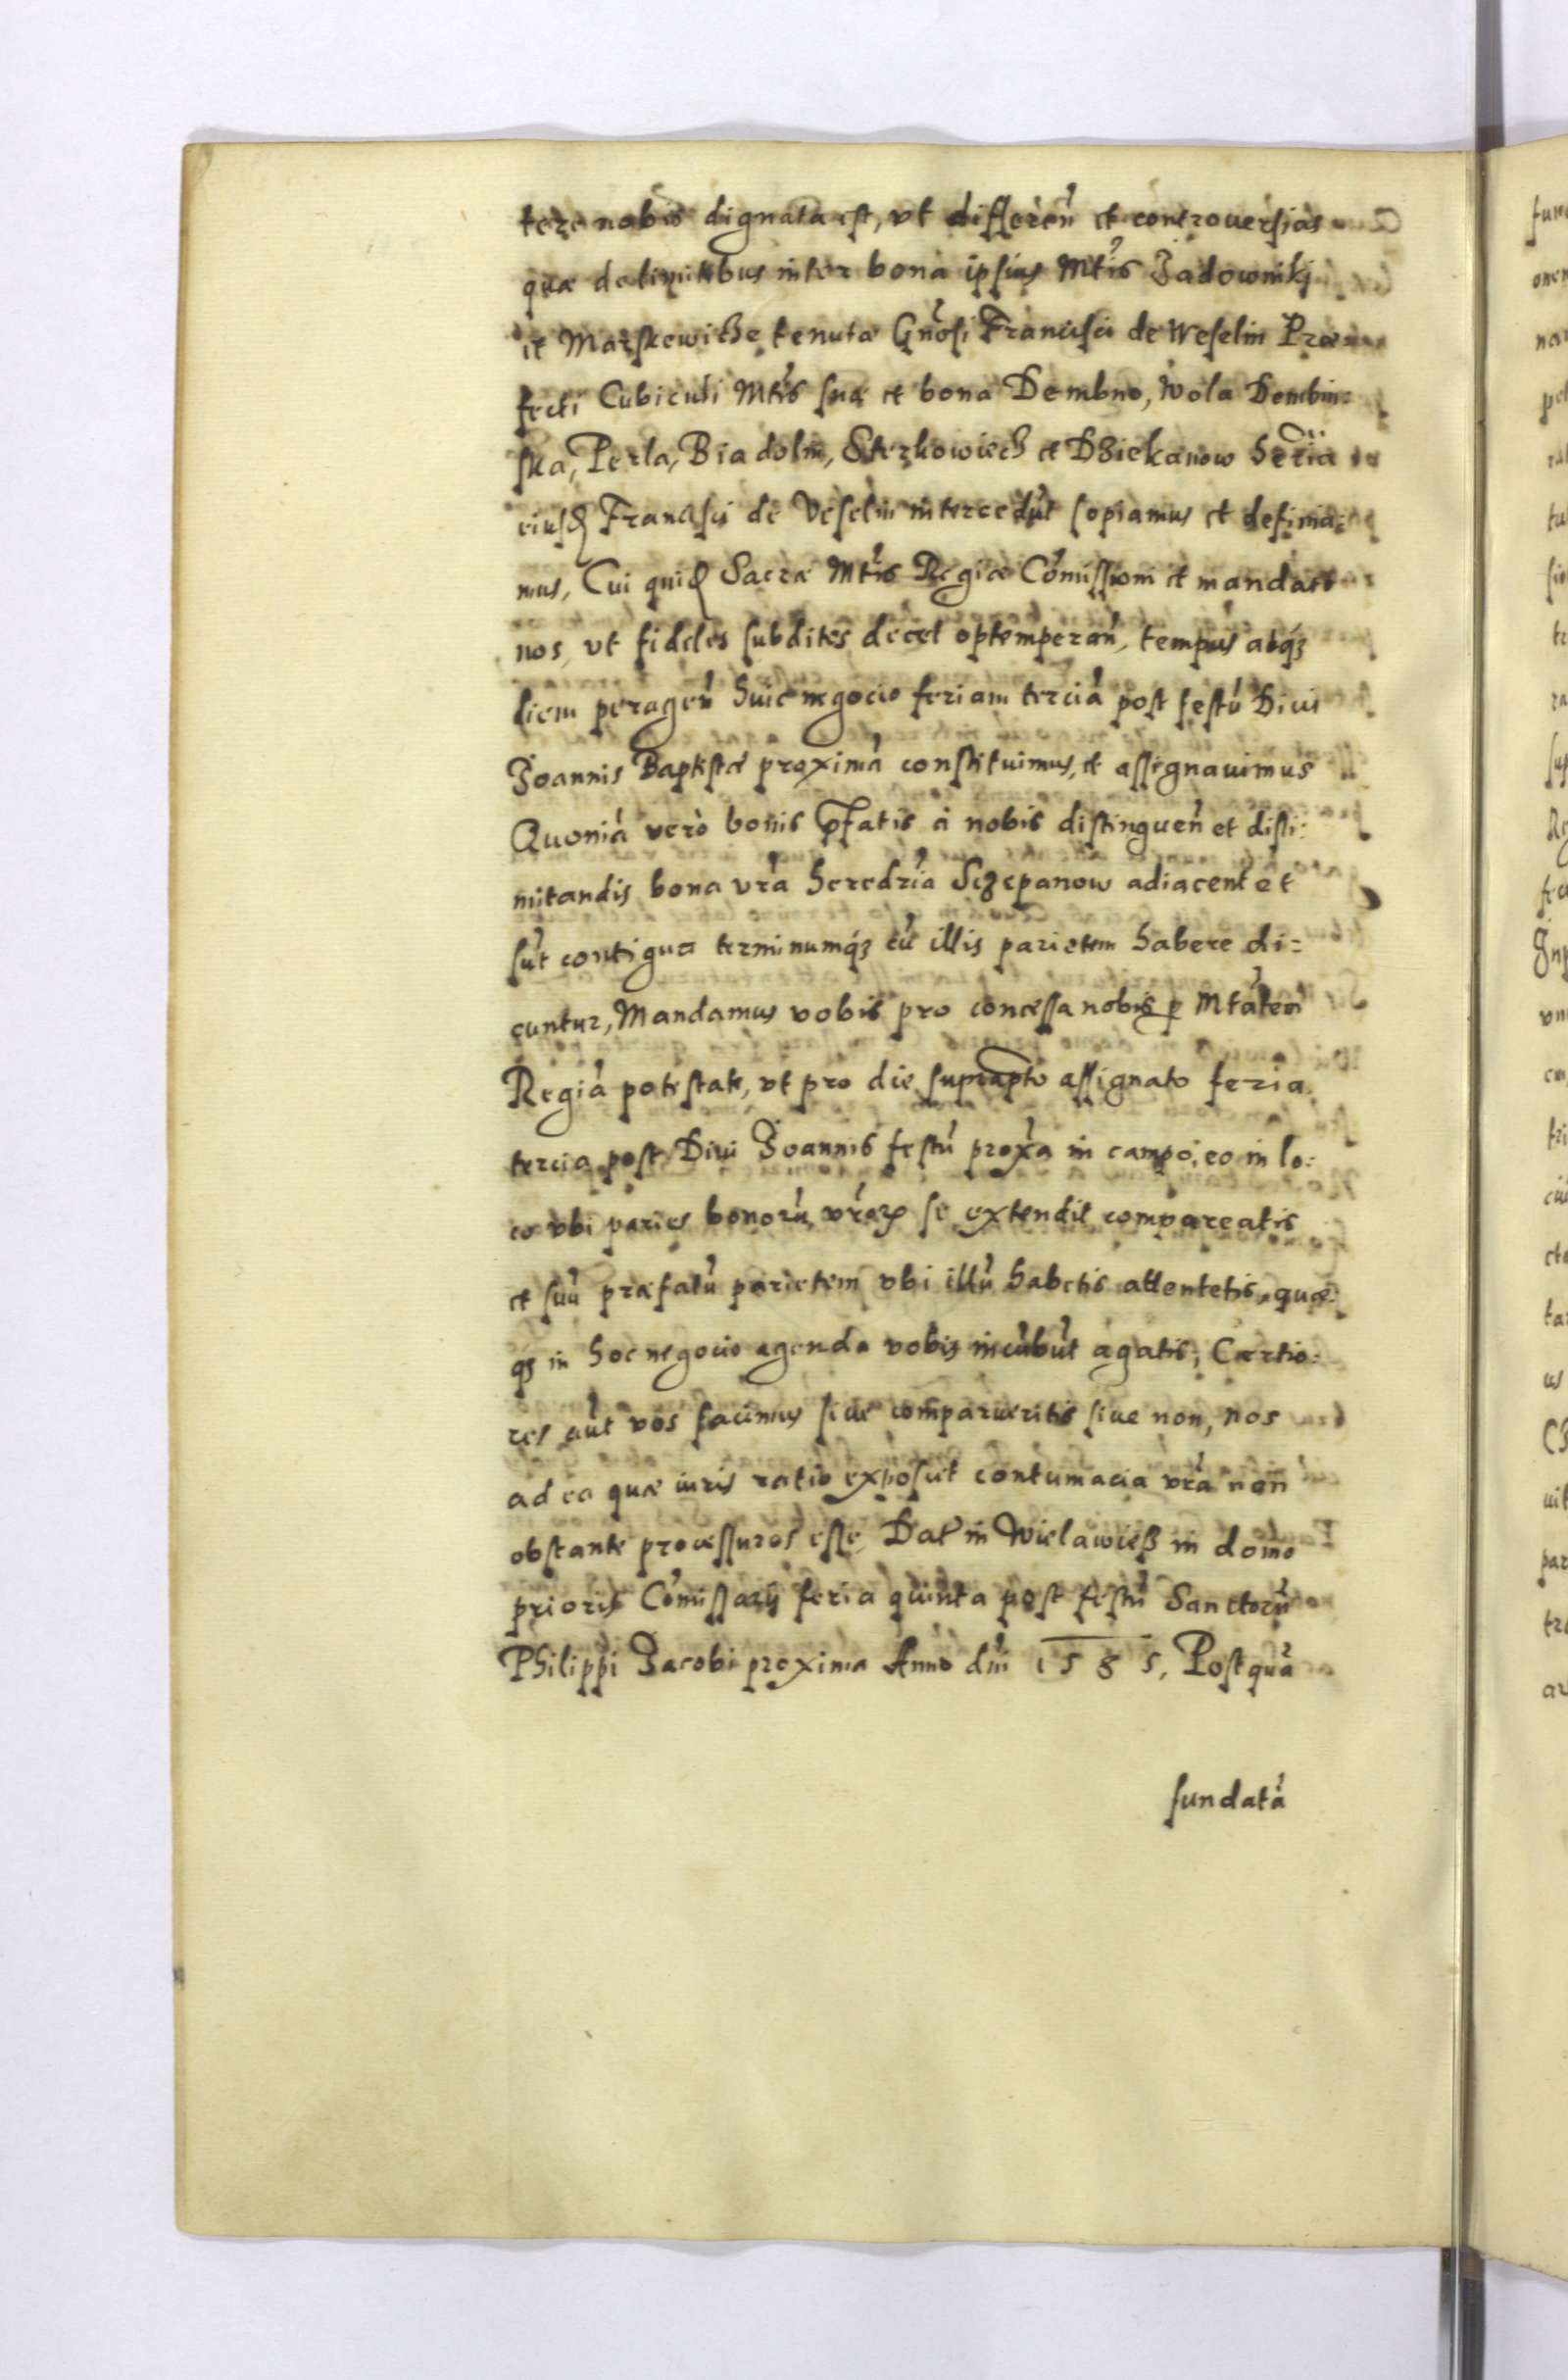 tere nobis dignata est, vt differen̄ et controuersias
quæ de limitibus inter bona ipsius Mt̄is Jadowniki
et Maszkewiche tenutæ Gn̄osi Francisci de Weselin Præ
fecti Cubiculi Mt̄is suæ et bona Dembno, Wola Dembin=
ska, Perla, Biadolin, Sterkowiech et Dziekanow her̄ia
eiusd Francisci de Veselin intercedūt sopiamus et defini=
mus, Cui quid Sacræ Mt̄is Regiæ Com̄issioni et mandato
nos, vt fideles subditos decet optemperan̄, tempus atq₃
diem peragen̄ huic negocio feriam terciā post festū Divi
Joannis Baptistæ proximā constituimus, et assignauimus
Quoniā verò bonis p̄fatis à nobis distinguen̄ et disli:
mitandis bona vr̄a heredr̄ia Sczepanow adiacent et
sūt contigua terminumq₃ cū illis parietem habere di=
cuntur, Mandamus vobis pro concessa nobis p Mtātem
Regiā potestate, vt pro die suprapto assignato feria
tercia post Divi Joannis festū prox̄a in campo, eo in lo:
co vbi paries bonorū vr̄ar se extendit compareatis
et suū præfatū parietem vbi illū habetis attentetis, quæ:
q₃ in hoc negocio agenda vobis incūbūt agatis, Certio:
res aūt vos facimus siue comparueritis siue non, nos
ad ea quæ iuris ratio exposcit contumacia vr̄a non
obstante processuros esse, Dat in Wielawieß in domo
prioris Com̄issarij feria quinta post festū Sanctorū
Philippi Jacobi proxima Anno dn̄i 1585, Postquā
fundatā